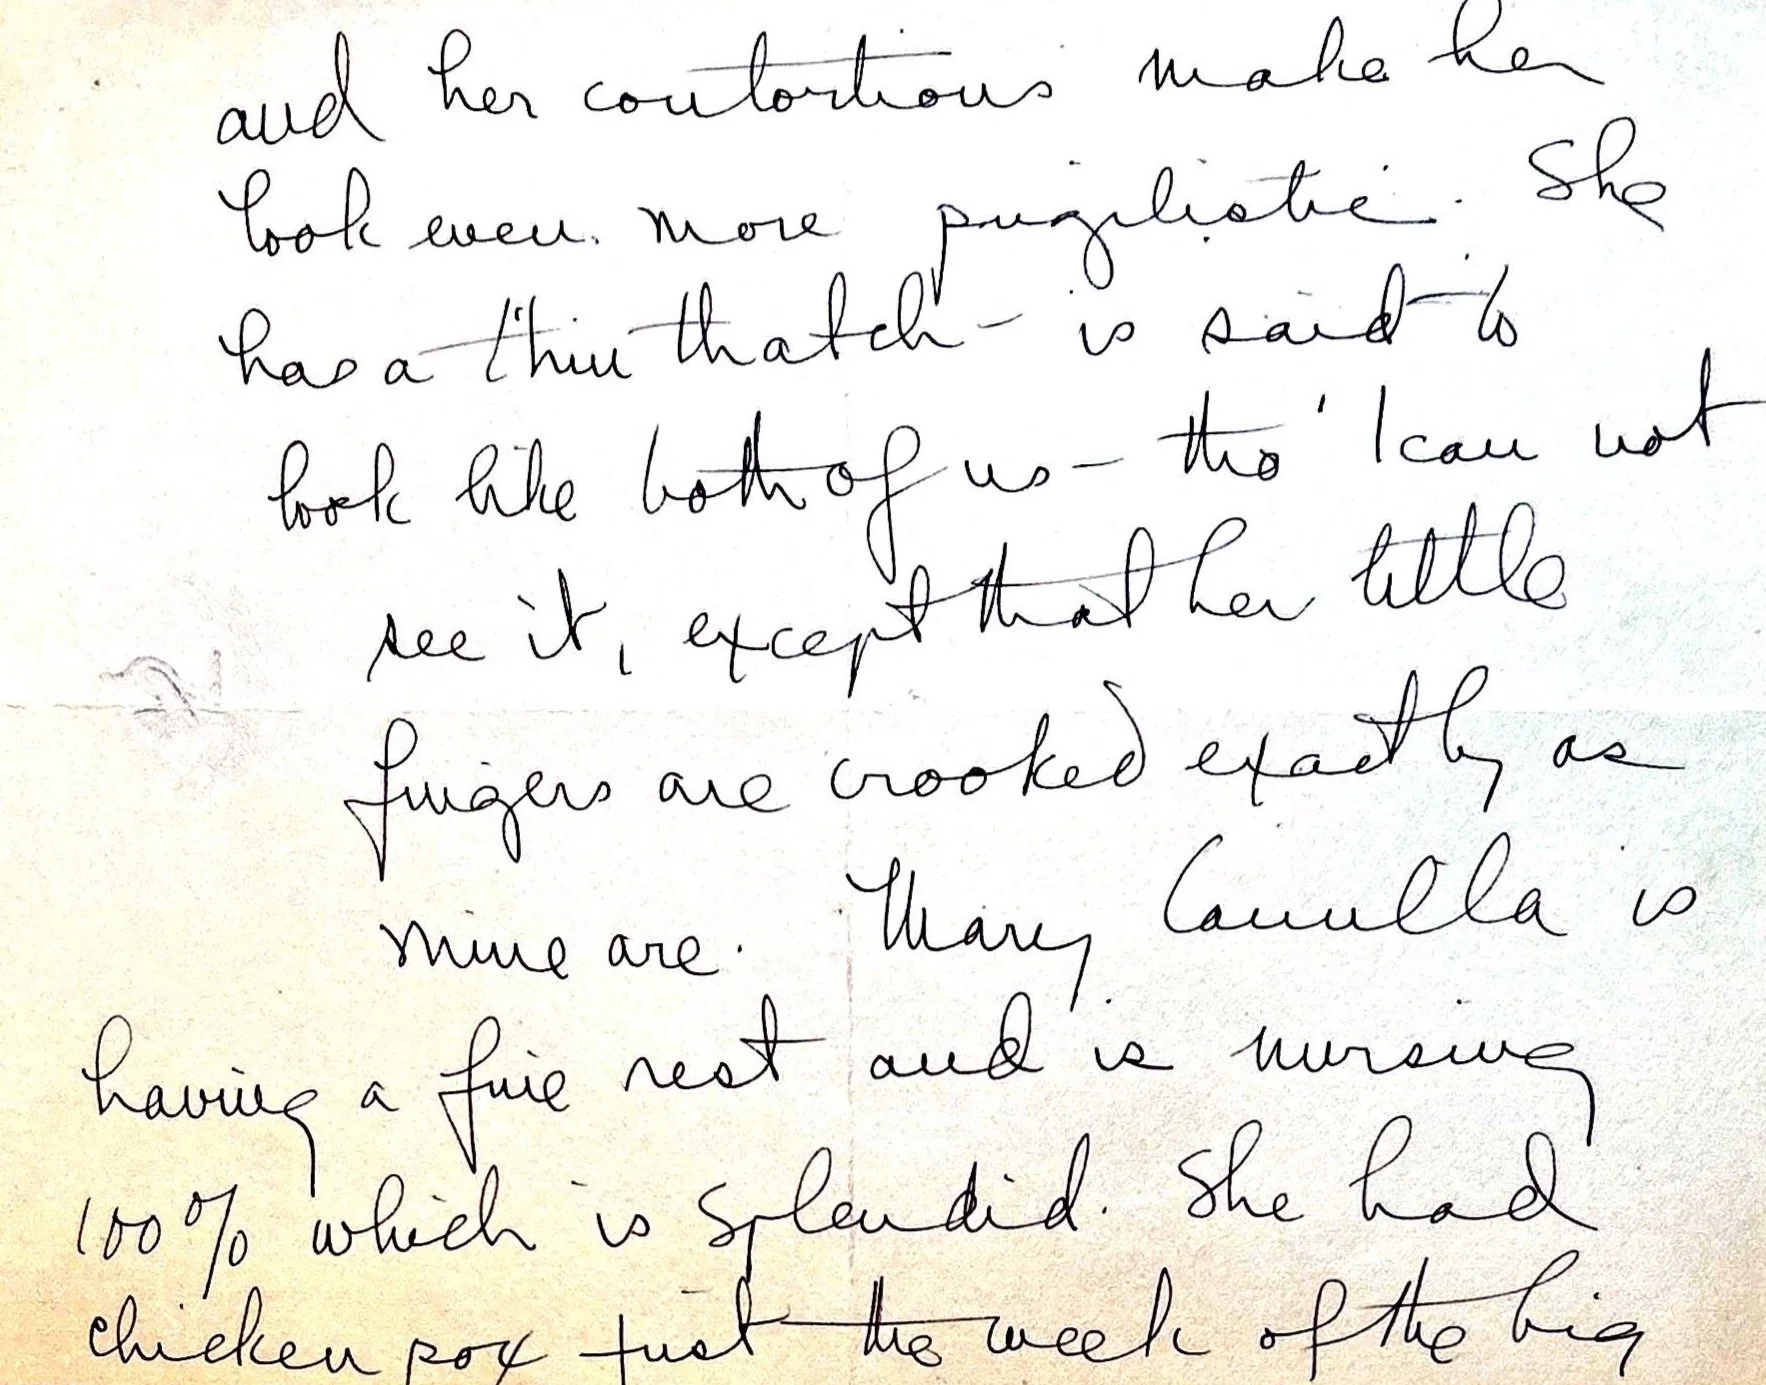 and her contortions make her
look even more pugilistic. She
has a thin thatch – is said to
look like both of us – tho' I can not
see it, except that her little
fingers are crooked exactly as
mine are. Mary Camilla is
having a fine rest and is nursing
100% which is splendid. She had
chicken pox just the week of the big